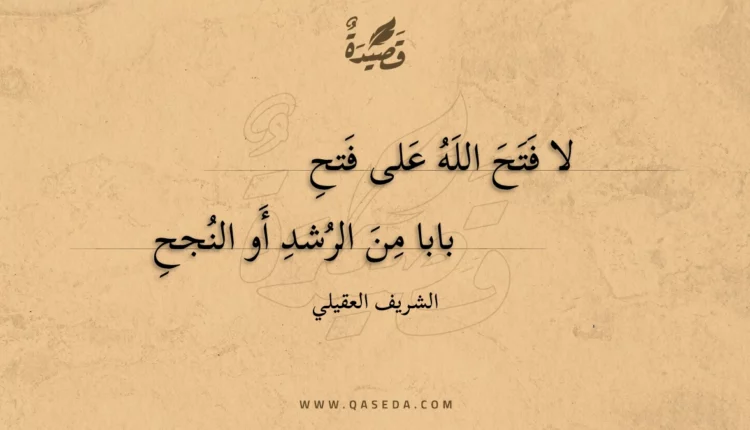 قَصِيدَةٌ
لا فَتَحَ اللَهُ عَلى فَتحِ
بابا مِنَ الرُشدِ أَو النُجحِ
الشريف العقيلي
WWW.QASEDA.COM